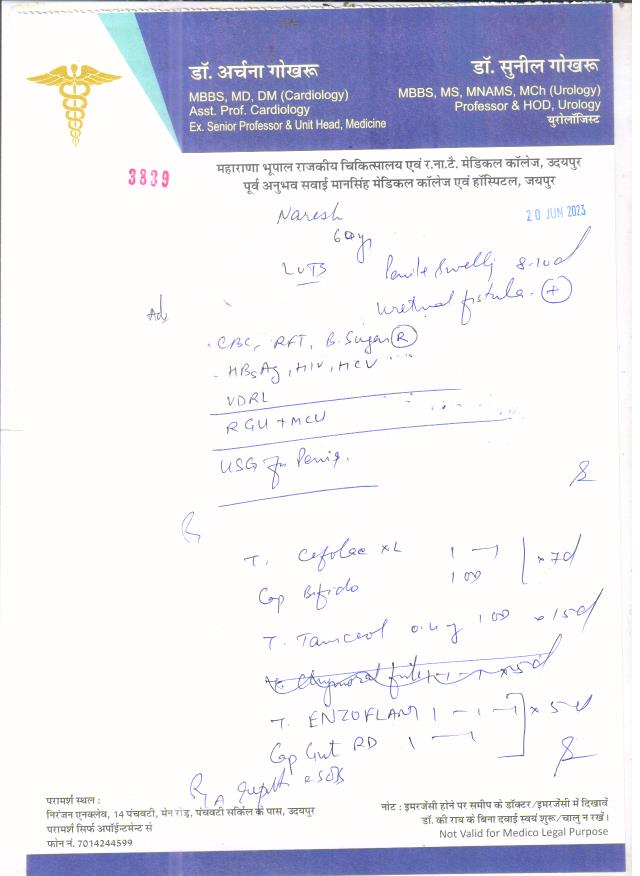 डॉ. अर्चना गोखरू
MBBS, MD, DM (Cardiology)
Asst. Prof. Cardiology
Ex. Senior Professor & Unit Head, Medicine
डॉ. सुनील गोखरू
MBBS, MS, MNAMS, MCh (Urology)
Professor & HOD, Urology
युरोलॉजिस्ट
महाराणा भूपाल राजकीय चिकित्सालय एवं र.ना.टै. मेडिकल कॉलेज, उदयपुर
पूर्व अनुभव सवाई मानसिंह मेडिकल कॉलेज एवं हॉस्पिटल, जयपुर
3839
20 JUN 2023
Naresh
LUTS
Penile Swelling 8-10d
Urethral fistula. +
Adv
CBC, RFT, B. Sugar R
HBsAg, HIV, HCV
VDRL
RGU + MCU
USG for Penis.
T. Cefolac XL 1 - 1 x 7d
Cap Bifido 1 OD
T. 0.4 mg 1 OD x 15d
x 5d
T. ENZOFLAM 1 - 1 - 1 x 5d
Cap Gut RD 1 - 1
परामर्श स्थल :
निरंजन एनक्लेव, 14 पंचवटी, मेन रोड़, पंचवटी सर्किल के पास, उदयपुर
परामर्श सिर्फ अपॉईन्टमेन्ट से
फोन नं. 7014244599
नोट : इमरजेंसी होने पर समीप के डॉक्टर/इमरजेंसी में दिखावें
डॉ. की राय के बिना दवाई स्वयं शुरू/चालु न रखें।
Not Valid for Medico Legal Purpose